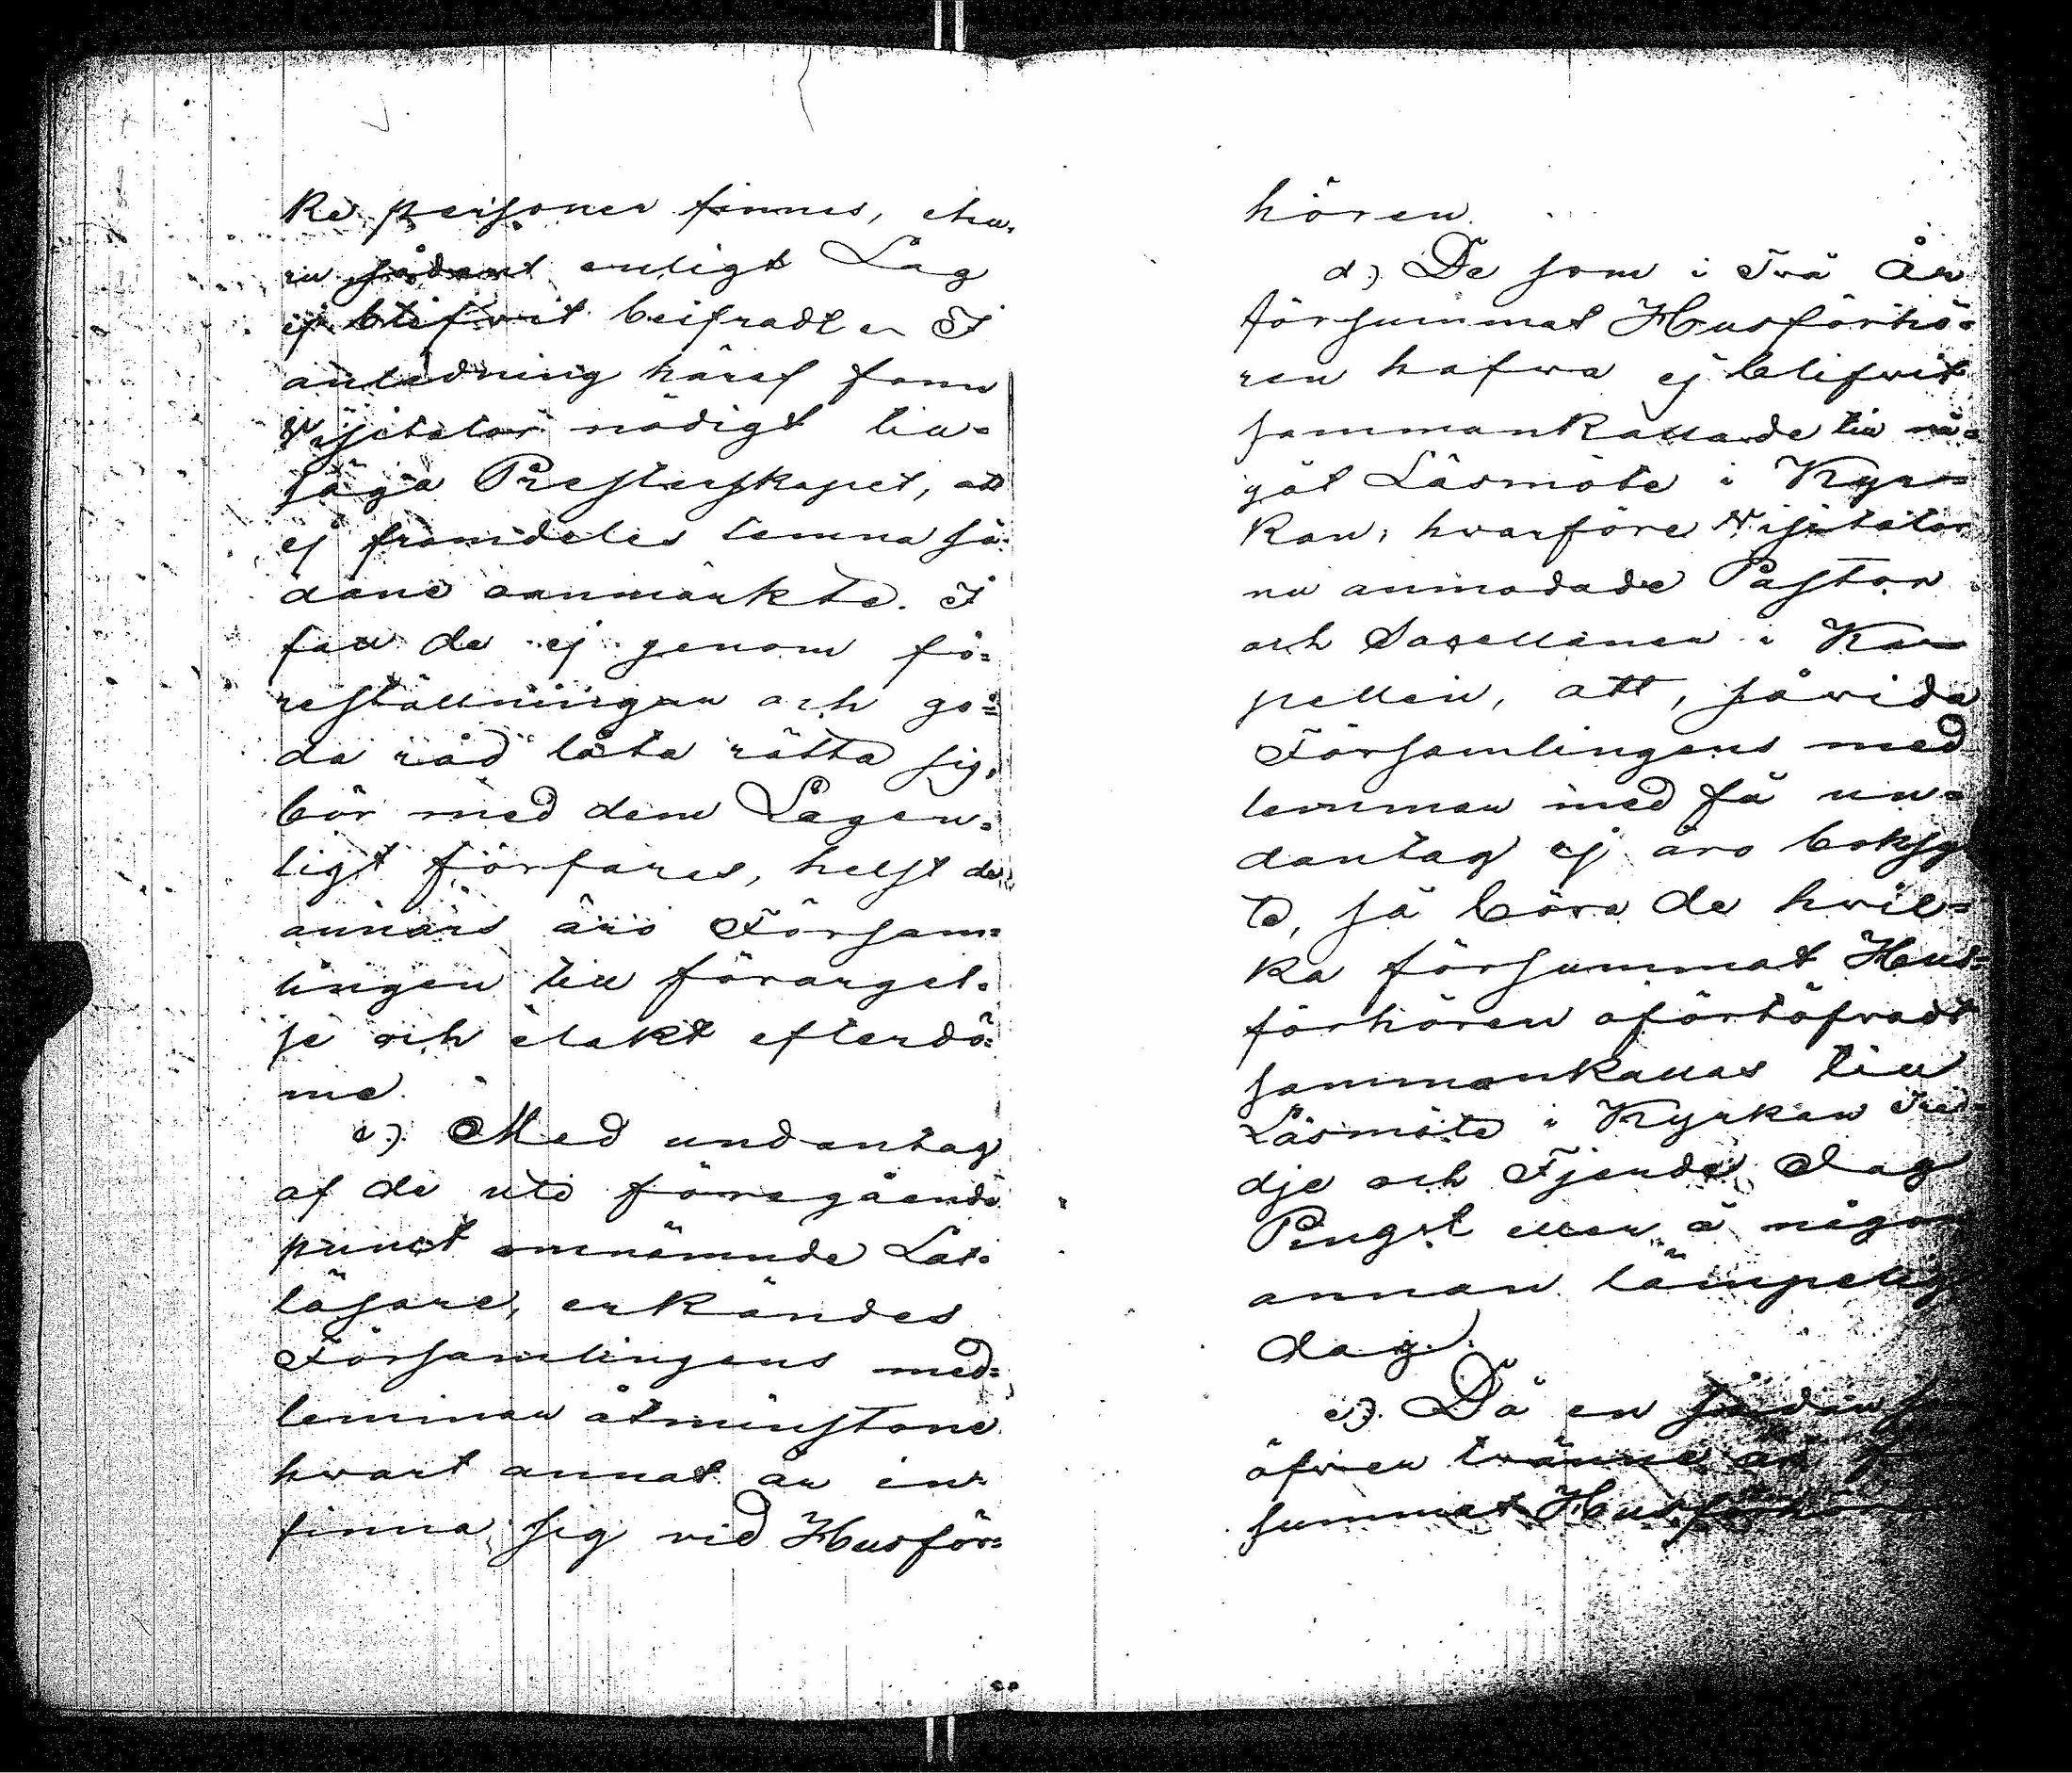 ke personer finnes, ehu-
ru sådant enligt Lag
ej blifwit beifradt. I
anledning häraf fann
Visitator nödigt till-
säga Presterskapet, att
ej framdeles lemna så-
dane oanmärkte. I
fall de ej genom fö-
reställningar och go-
da råd låta rätta sig,
bör med dem Lagen-
ligt förfares, helst de
annars äro Försam-
lingen till förargel-
se och elakt efterdö-
me.
c). Med undantag
af de uti föregående
punct omnämnde Lat-
läsare, erkändes
Församlingens med-
lemmar åtminstone
hwart annat år in-
finna sig vid Husför-
hören.
d). De som i Två År
försummat Husförhö-
ren hafwa ej blifwit
sammankallade till nå-
got Läsmöte i Kyr-
kan; hwarföre Visitator
nu anmodade Pastor
och Sacellanen i Ka-
pellen, att, såwida
Församlingens med-
lemmar med få un-
dantag ej äro boksyn-
te, så böra de hwil-
ka försummat Hus-
förhören ofördtöfwadt
sammankallas till
Läsmöte i Kyrkan Tre-
dje och Fjerde Dag
Pingst eller å någon
annan lämpelig
dag.
e). Då en sådan
öfwer tvänne år
summat Husförhören